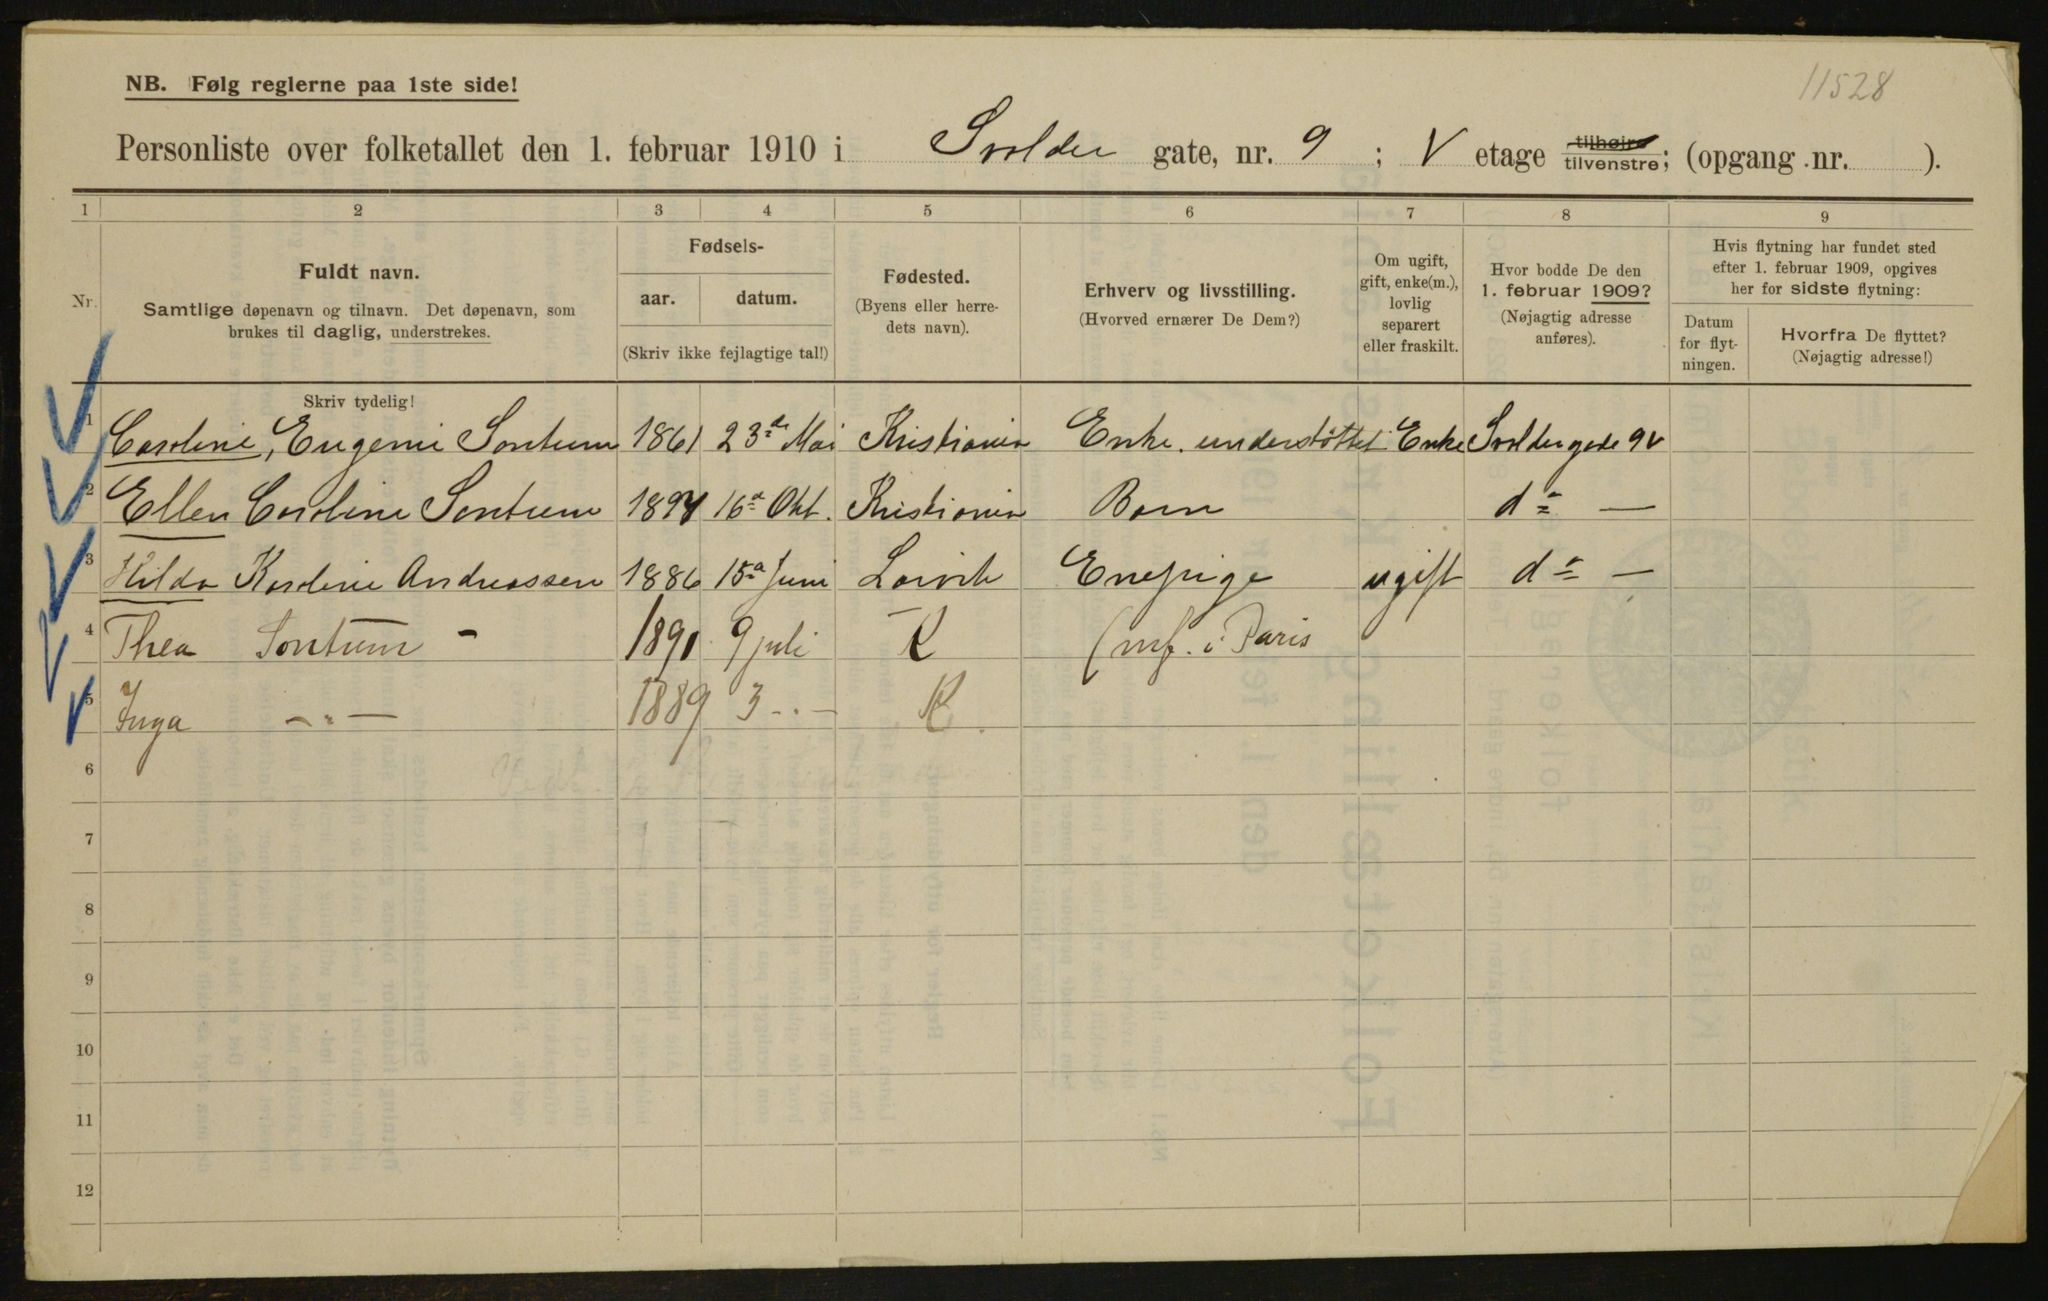 NB. Følg reglerne paa 1ste side!
11528
Personliste over folketallet den 1. februar 1910 i Svolder gate, nr. 9 ; V etage tilhøire tilvenstre; (opgang nr. ).
1 2 3 4 5 6 7 8 9
Nr.
Fuldt navn.
Samtlige døpenavn og tilnavn. Det døpenavn, som
brukes til daglig, understrekes.
Skriv tydelig!
Fødsels-
aar. datum.
(Skriv ikke fejlagtige tal!)
Fødested.
(Byens eller herre-
dets navn).
Erhverv og livsstilling.
(Hvorved ernærer De Dem?)
Om ugift,
gift, enke(m.),
lovlig
separert
eller fraskilt.
Hvor bodde De den
1. februar 1909?
(Nøjagtig adresse
anføres).
Hvis flytning har fundet sted
efter 1. februar 1909, opgives
her for sidste flytning:
Datum
for flyt-
ningen.
Hvorfra De flyttet?
(Nøjagtig adresse!)
1 Caroline, Eugenie Sontum 1861 23de Mai Kristiania Enke. understøttet Enke Svoldergade 9 V
2 Ellen Caroline Sontum 16d Okt. Kristiania Barn d= —
3 Hilda Karoline Andreassen 1886 15d Juni Larvik Enepige ugift d= —
4 Thea Sontum - 1891 9 juli K (mf. i Paris
5 Inga — " — 1889 3 - " - K.
6
7
8
9
10
11
12